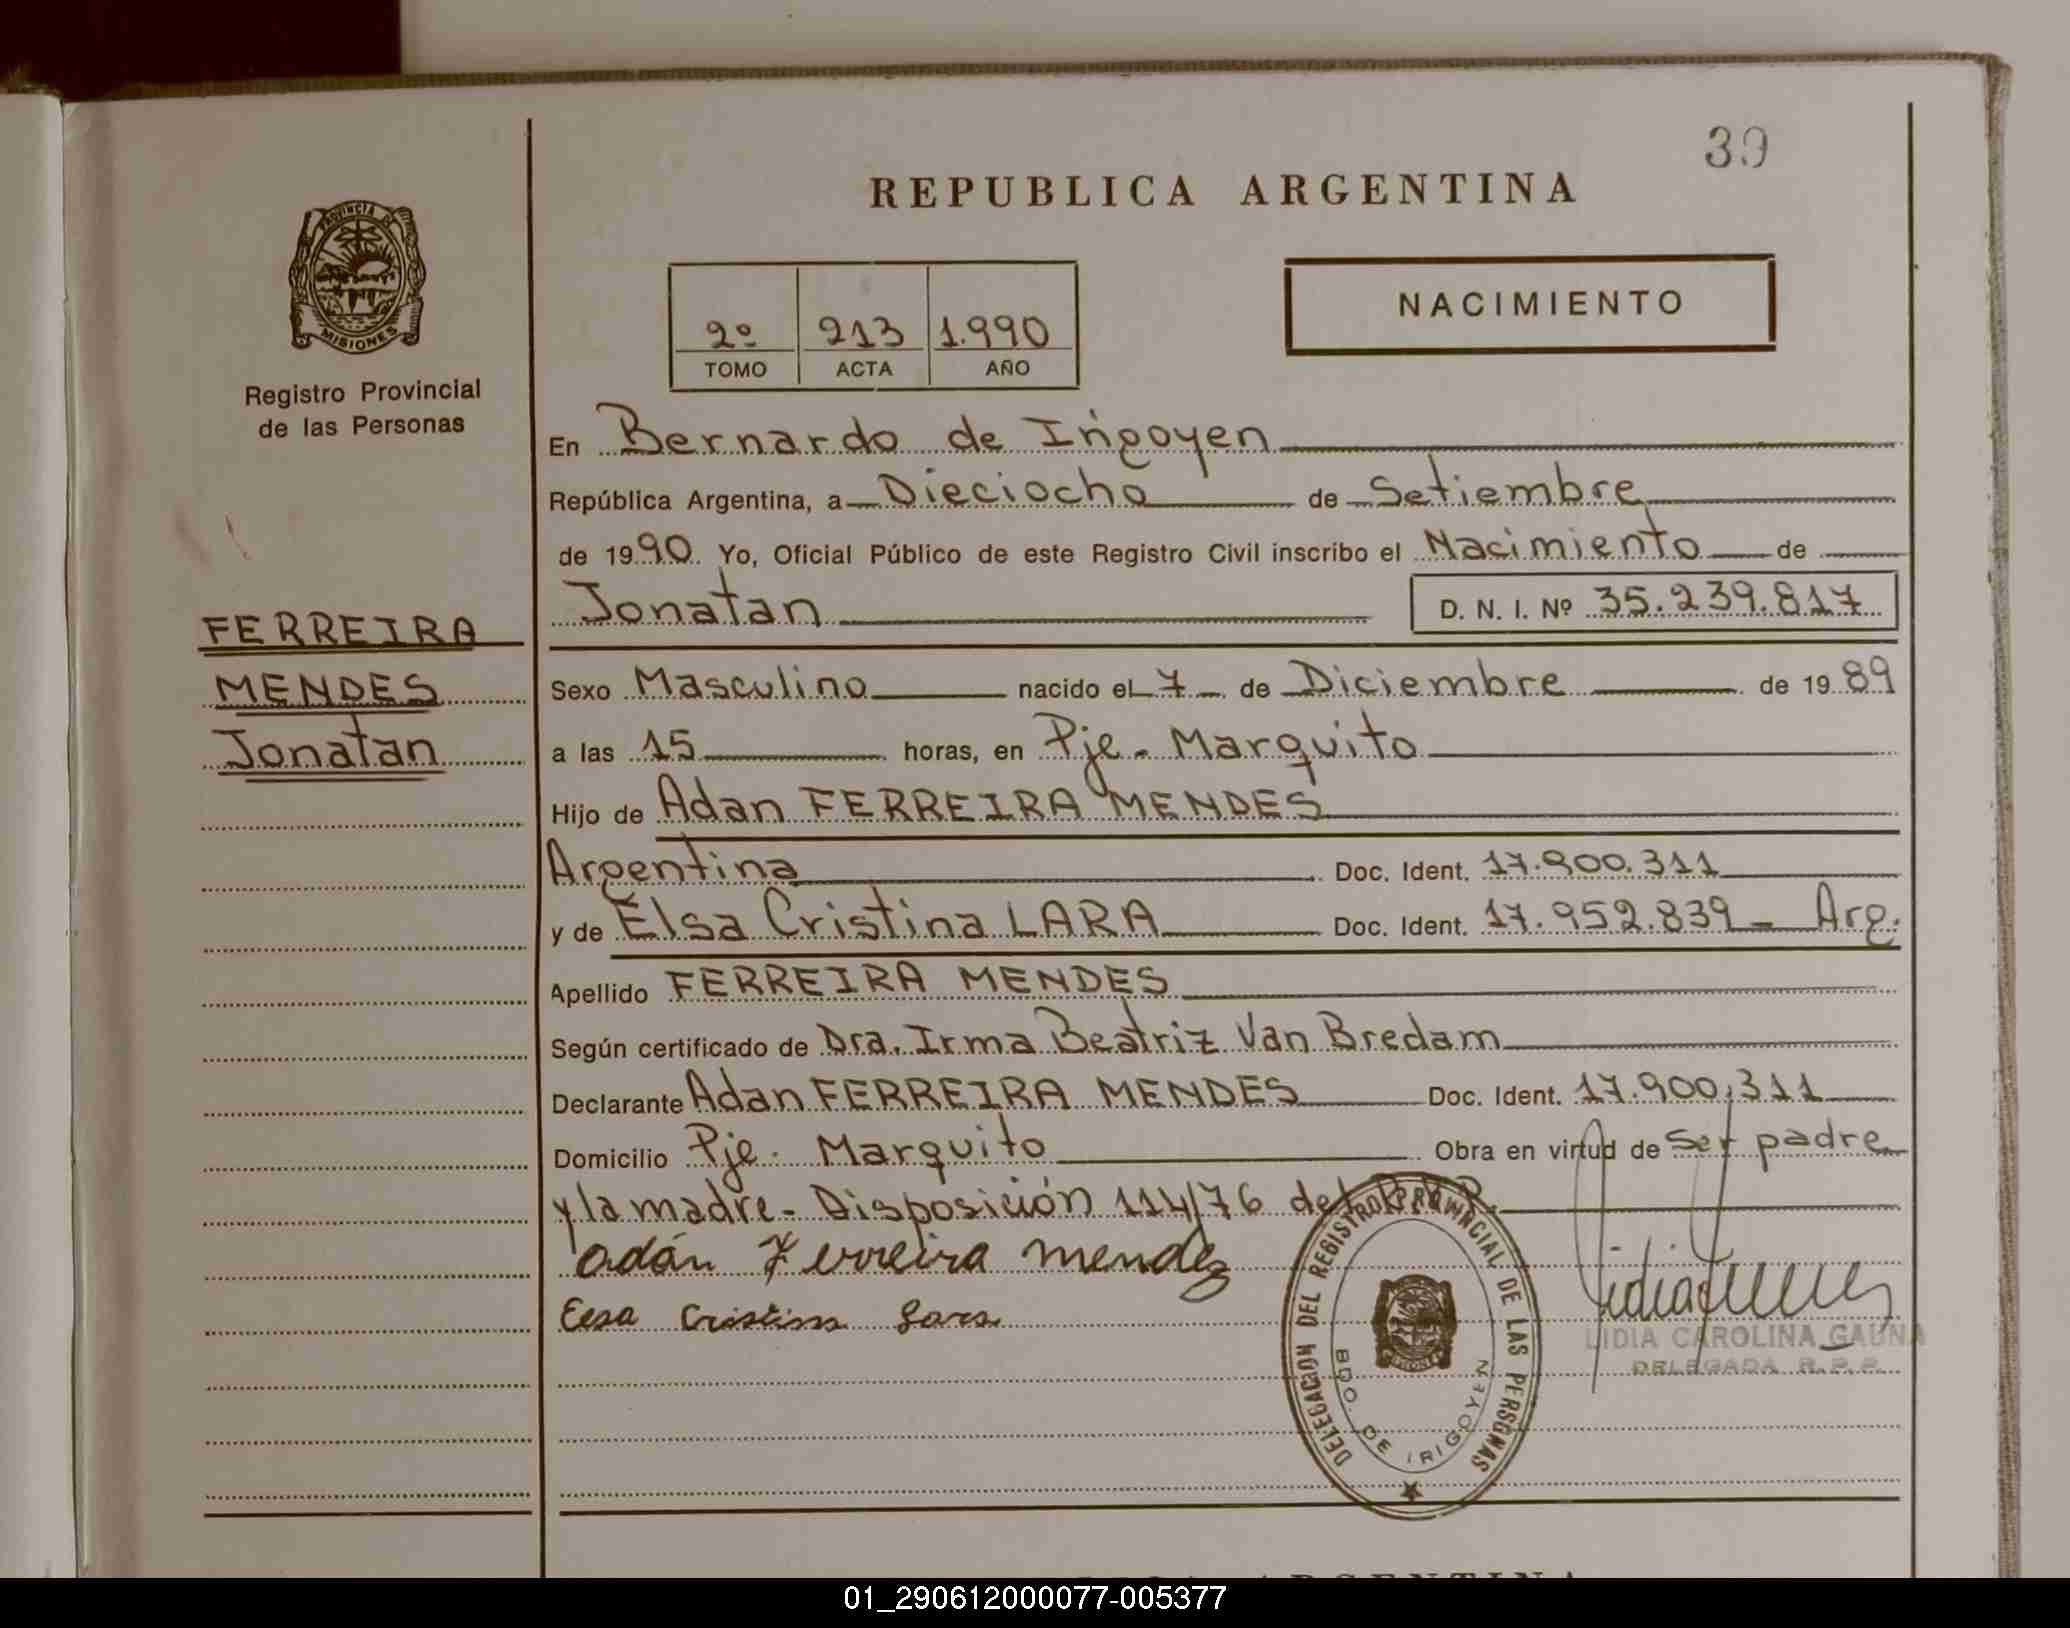 39
REPUBLICA ARGENTINA
PROVINCIA DE
MISIONES
Registro Provincial
de las Personas
2º 213 1.990
TOMO ACTA AÑO
NACIMIENTO
En Bernardo de Irigoyen
República Argentina, a Dieciocho de Setiembre
de 1990. Yo, Oficial Público de este Registro Civil inscribo el Nacimiento de
Jonatan D. N. I. Nº 35.239.817
FERREIRA
MENDES
Jonatan
Sexo Masculino nacido el 7 de Diciembre de 1989
a las 15 horas, en Pje. Marquito
Hijo de Adan FERREIRA MENDES
Argentina Doc. Ident. 17.900.311
y de Elsa Cristina LARA Doc. Ident. 17.952.839 - Arg.
Apellido FERREIRA MENDES
Según certificado de Dra. Irma Beatriz Van Bredam
Declarante Adan FERREIRA MENDES Doc. Ident. 17.900.311
Domicilio Pje. Marquito Obra en virtud de ser padre
y la madre - Disposición 114/76 del R.P.P.
adán Ferreira mendez
Elsa Cristina Lara
DELEGACION DEL REGISTRO PROVINCIAL DE LAS PERSONAS
BDO. DE IRIGOYEN
LIDIA CAROLINA GAUNA
DELEGADA R.P.P.
01_290612000077-005377